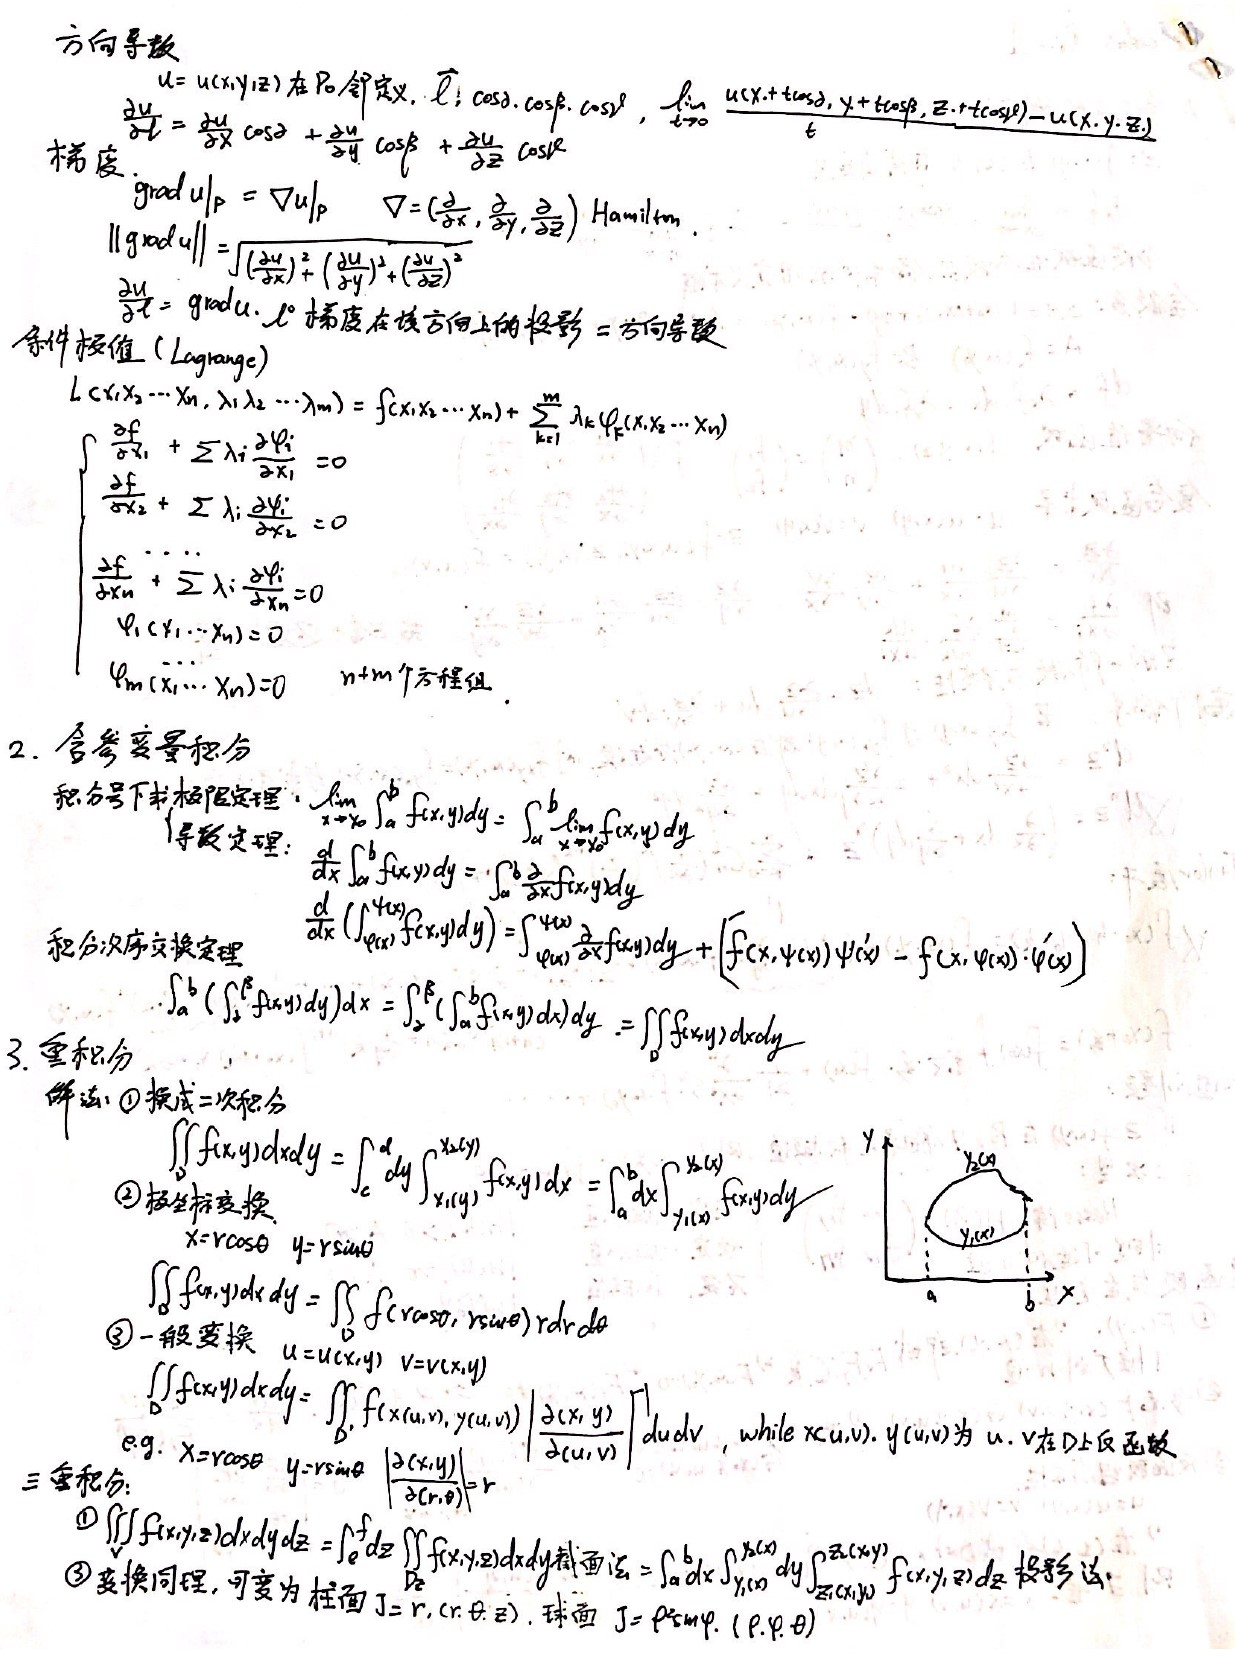 方向导数
u = u(x,y,z) 在 P₀ 邻定义. l⃗: cosα. cosβ. cosγ, lim_{t→0} (u(x₀+tcosα, y₀+tcosβ, z₀+tcosγ) - u(x₀ y₀ z₀)) / t
∂u/∂l = ∂u/∂x cosα + ∂u/∂y cosβ + ∂u/∂z cosγ
梯度.
grad u|_P = ∇u|_P ∇ = (∂/∂x, ∂/∂y, ∂/∂z) Hamilton.
||grad u|| = √((∂u/∂x)² + (∂u/∂y)² + (∂u/∂z)²)
∂u/∂l = grad u · l° 梯度在该方向上的投影 = 方向导数
条件极值 (Lagrange)
L(x₁x₂⋯xₙ, λ₁λ₂⋯λₘ) = f(x₁x₂⋯xₙ) + Σ_{k=1}^{m} λₖφₖ(x₁x₂⋯xₙ)
∂f/∂x₁ + Σλᵢ ∂φᵢ/∂x₁ = 0
∂f/∂x₂ + Σλᵢ ∂φᵢ/∂x₂ = 0
....
∂f/∂xₙ + Σλᵢ ∂φᵢ/∂xₙ = 0
φ₁(x₁⋯xₙ) = 0
...
φₘ(x₁⋯xₙ) = 0 n+m个方程组.
2. 含参变量积分
积分号下求极限定理: lim_{x→x₀} ∫_a^b f(x,y)dy = ∫_a^b lim_{x→x₀} f(x,y)dy
导数定理: d/dx ∫_a^b f(x,y)dy = ∫_a^b ∂/∂x f(x,y)dy
d/dx (∫_{φ(x)}^{ψ(x)} f(x,y)dy) = ∫_{φ(x)}^{ψ(x)} ∂/∂x f(x,y)dy + [f(x,ψ(x))ψ'(x) - f(x,φ(x))·φ'(x)]
积分次序交换定理
∫_a^b (∫_α^β f(x,y)dy)dx = ∫_α^β (∫_a^b f(x,y)dx)dy = ∬_D f(x,y)dxdy
3. 重积分
解法: ① 换成二次积分
∬_D f(x,y)dxdy = ∫_c^d dy ∫_{x₁(y)}^{x₂(y)} f(x,y)dx = ∫_a^b dx ∫_{y₁(x)}^{y₂(x)} f(x,y)dy
y
y₂(x)
y₁(x)
a b x
② 极坐标变换
x=rcosθ y=rsinθ
∬_D f(x,y)dxdy = ∬_D f(rcosθ, rsinθ) rdrdθ
③ 一般变换 u=u(x,y) v=v(x,y)
∬_D f(x,y)dxdy = ∬_D f(x(u,v), y(u,v)) |∂(x,y)/∂(u,v)| dudv, while x(u,v). y(u,v)为 u. v在D上反函数
e.g. x=rcosθ y=rsinθ |∂(x,y)/∂(r,θ)| = r
三重积分:
① ∭_V f(x,y,z)dxdydz = ∫_e^f dz ∬_{Dz} f(x,y,z)dxdy 截面法 = ∫_a^b dx ∫_{y₁(x)}^{y₂(x)} dy ∫_{z₁(x,y)}^{z₂(x,y)} f(x,y,z)dz 投影法.
③ 变换同理, 可变为 柱面 J=r, (r.θ.z). 球面 J=ρ²sinφ. (ρ.φ.θ)